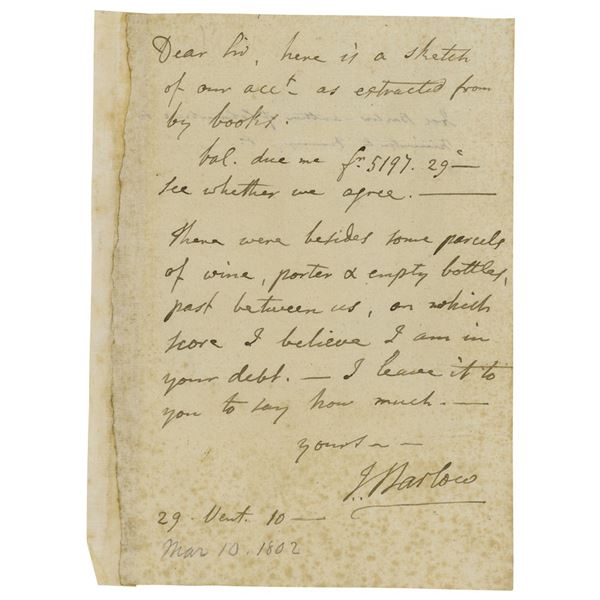 Dear Sir, here is a sketch
of our acct. as extracted from
by books.
bal. due me fr. 5197. 29c —
see whether we agree. —
There were besides some parcels
of wine, porter & empty bottles,
past between us, on which
score I believe I am in
your debt. — I leave it to
you to say how much. —
yours — —
J. Barlow
29. Vent. 10 —
Mar 10. 1802